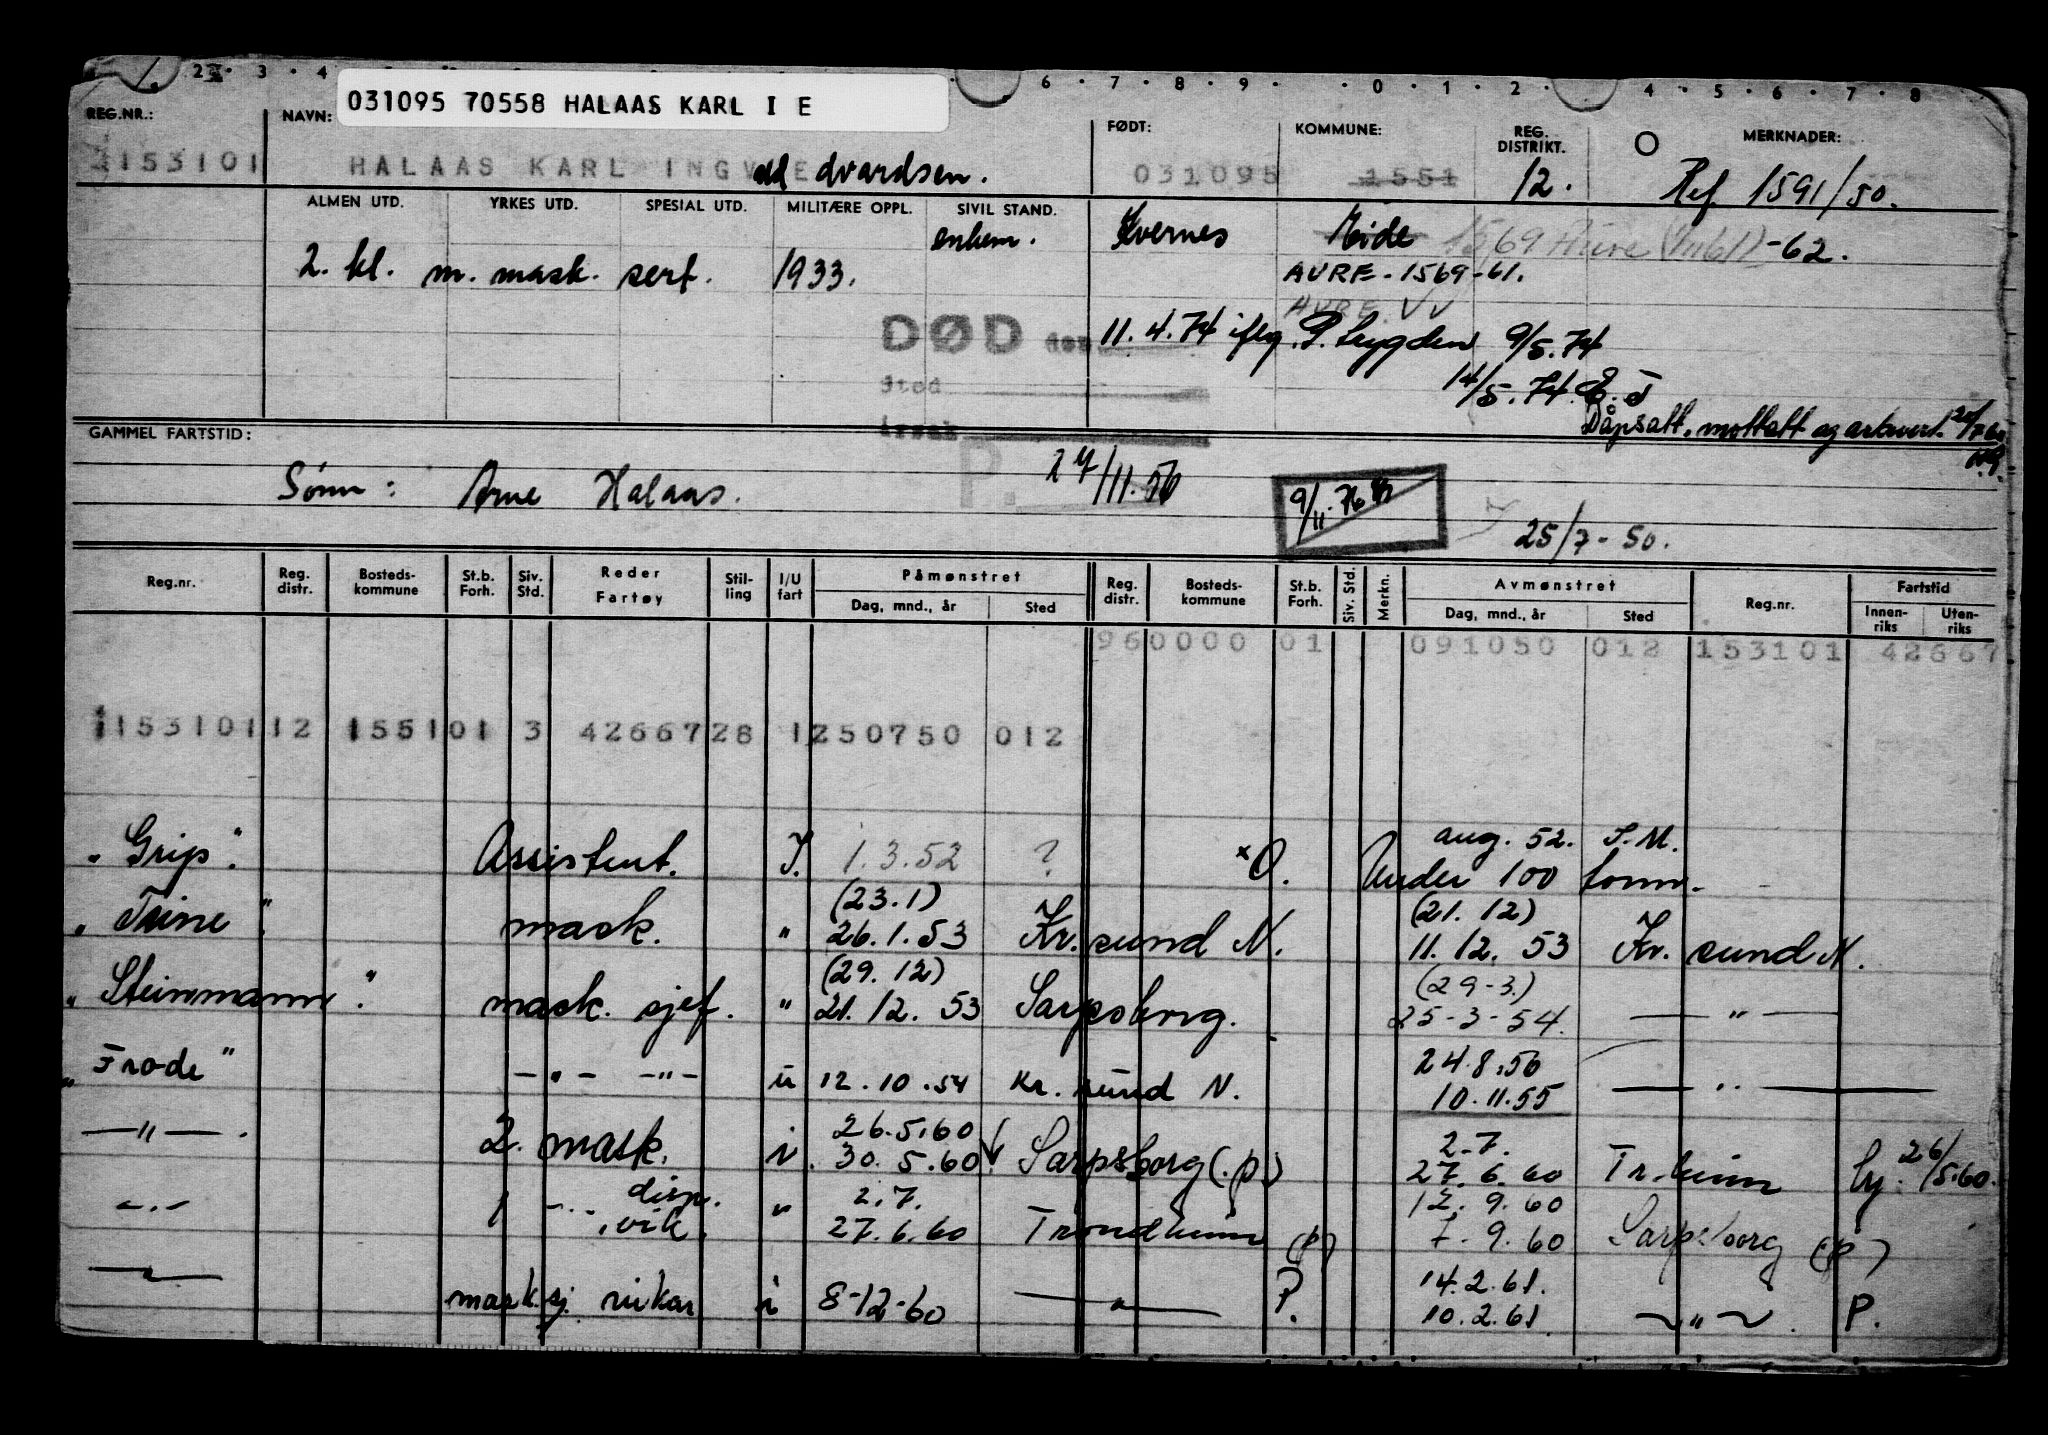 031095 70558 HALAAS KARL I E
REG.NR.: NAVN: FØDT: KOMMUNE: REG. DISTRIKT. MERKNADER:
153101 HALAAS KARL INGV E dvardsen. 031095 1551 12. Ref 1591/50.
ALMEN UTD. YRKES UTD. SPESIAL UTD. MILITÆRE OPPL. SIVIL STAND.
enkem. Kvernes Eide 1569 -62.
2. kl. m. mask. sert. 1933. AURE - 1569-61.
AURE
DØD den 11.4.74 iflg. 9/5.74
Sted 14/5.74.
Årsak Dåpsatt. mottatt og arkivert.
GAMMEL FARTSTID:
Sønn: Arne Halaas. P. 27/11.56 9/11.76
25/7-50.
Reg.nr. Reg. distr. Bosteds-kommune St.b. Forh. Siv. Std. Reder Fartøy Stil-ling I/U fart Påmønstret Dag, mnd., år Sted Reg. distr. Bosteds-kommune St.b. Forh. Siv. Std. Merkn. Avmønstret Dag, mnd., år Sted Reg.nr. Fartstid Innen-riks Uten-riks
960000 01 091050 012 153101 42667
115310112 155101 3 4266728 1250750 012
aug. 52. S.M.
"Grip". Assistent. I. 1.3.52 ? x O. Under 100 tonn.
(23.1) (21.12)
"Trine". mask. " 26.1.53 Kr.sund N. 11.12.53 Kr.sund N.
(29.12) (29-3.)
"Steinmann". mask. sjef. " 21.12.53 Sarpsborg. 25-3-54. — " —
24.8.56
"Frode" -"- -"- u 12.10.54 Kr.sund N. 10.11.55 — " —
26.5.60 2.7.
—"—. 2. mask. i 30.5.60 Sarpsborg (p) 27.6.60 Tr.heim 26/5.60.
disp. 2.7. 12.9.60
-"- 1 -"- vik. " 27.6.60 Trondheim (p) 7.9.60 Sarpsborg (p)
14.2.61.
—"— mask.sj. vikar i 8-12-60 — " — P. 10.2.61. ~ " ~. P.